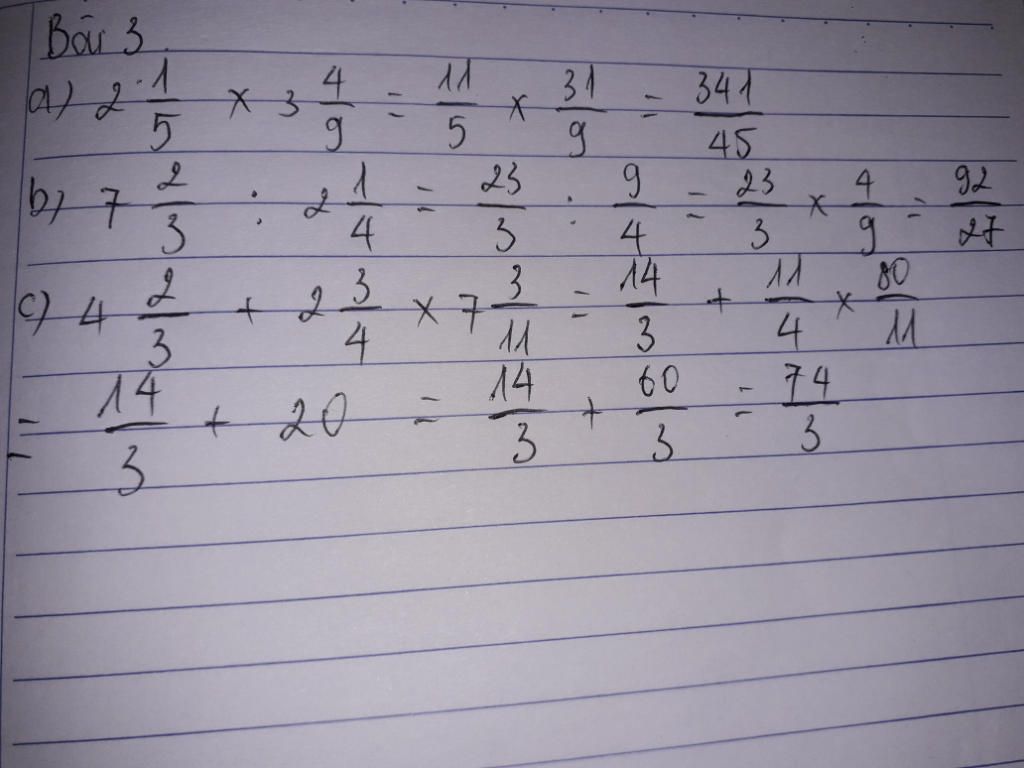 Bài 3.
a) 2 1/5 × 3 4/9 = 11/5 × 31/9 = 341/45
b) 7 2/3 : 2 1/4 = 23/3 : 9/4 = 23/3 × 4/9 = 92/27
c) 4 2/3 + 2 3/4 × 7 3/11 = 14/3 + 11/4 × 80/11
= 14/3 + 20 = 14/3 + 60/3 = 74/3